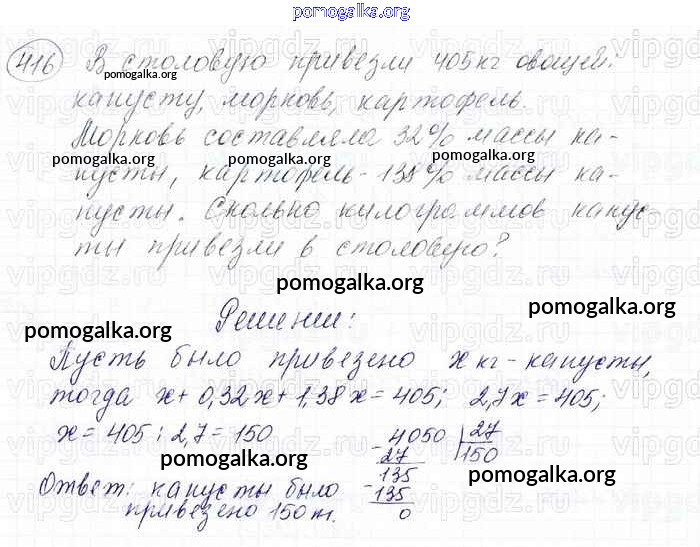 pomogalka.org
416 В столовую привезли 405 кг овощей:
pomogalka.org
капусту, морковь, картофель.
Морковь составляла 32% массы ка-
pomogalka.org pomogalka.org pomogalka.org
пусты, картофель - 138% массы ка-
пусты. Сколько килограммов капус-
ты привезли в столовую?
pomogalka.org
pomogalka.org
Решение:
pomogalka.org
Пусть было привезено x кг - капусты,
тогда x + 0,32x + 1,38x = 405; 2,7x = 405;
x = 405 : 2,7 = 150
4050 27
- 27 150
135
- 135
0
pomogalka.org
pomogalka.org
Ответ: капусты было
привезено 150 т.